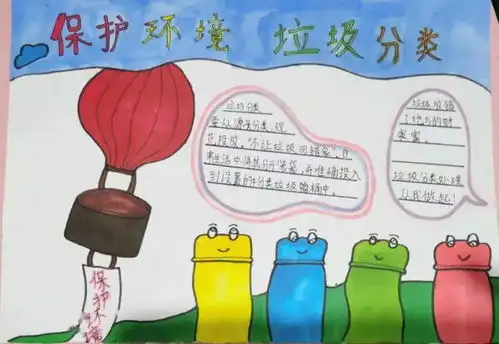 保护环境 垃圾分类
垃圾分类
要从源头分类，观
范投放，"不让垃圾回错家"，日
常生活中将其分开装袋，并准确投入
到设置的分类垃圾箱桶中。
垃圾放错
了地方的财
富。
垃圾分类处理
从我做起！
保护环境